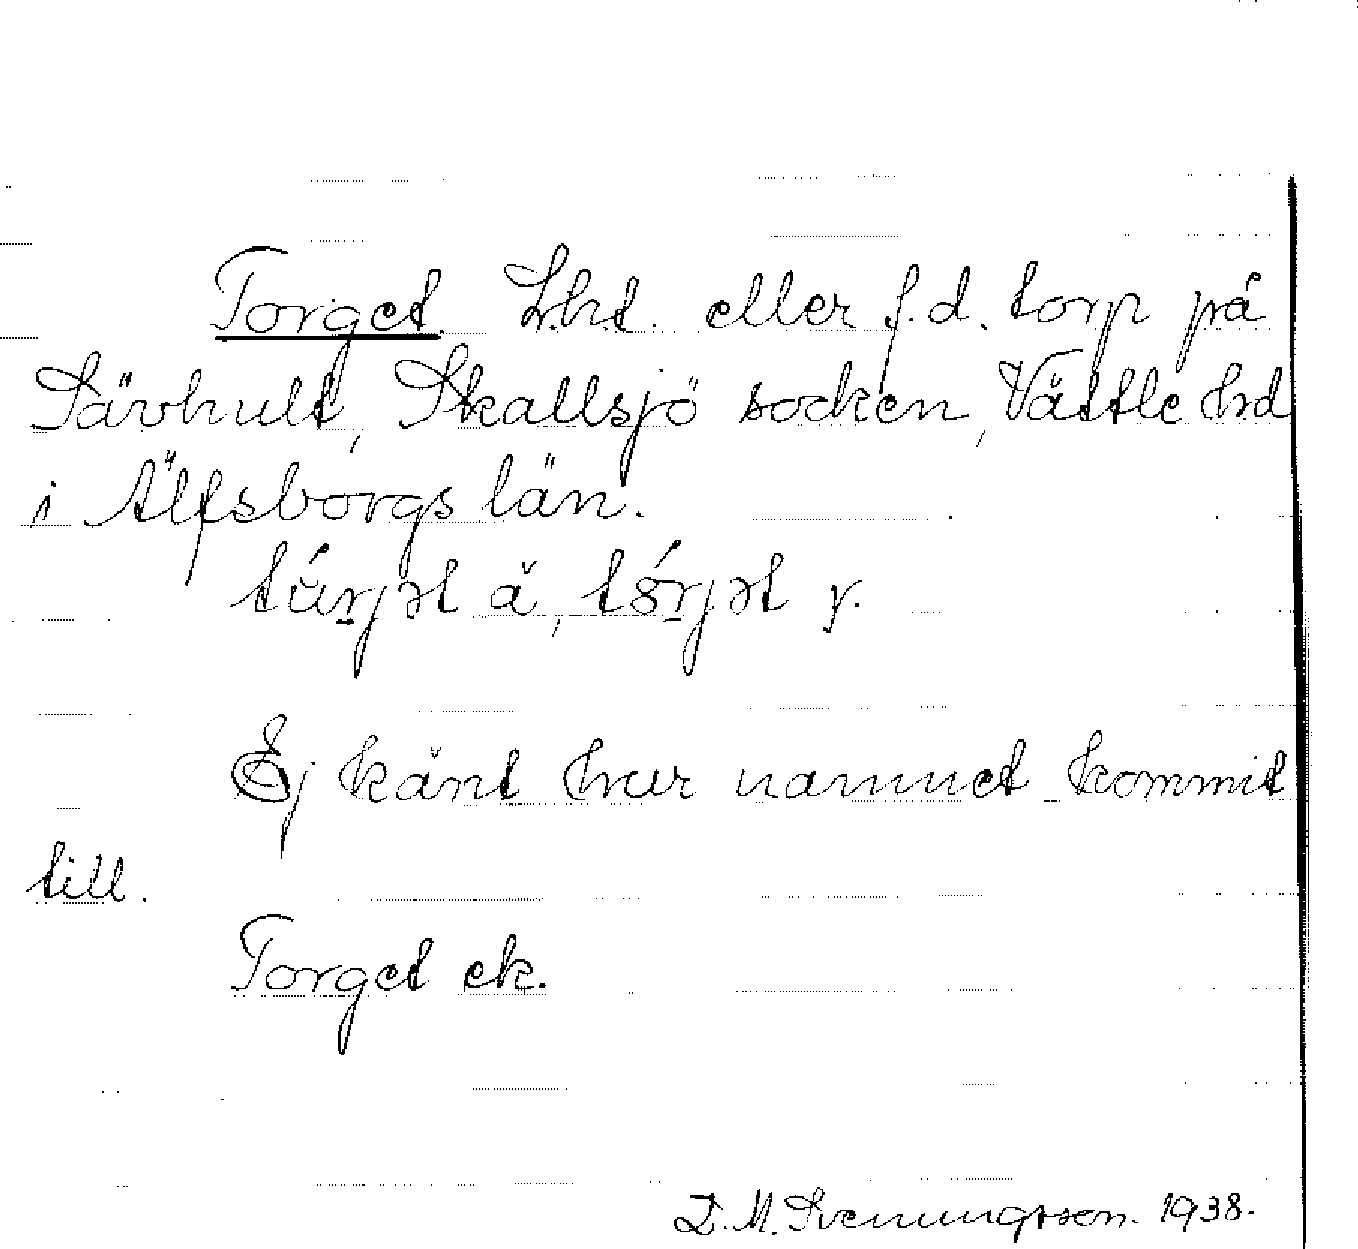 Torget. Lht. eller f.d. torp på
Sävhult, Skallsjö socken, Vättle hd
i Älfsborgs län.
Ej känt hur namnet kommit
till.
Torget ek.
D. M. Svenungsson. 1938.